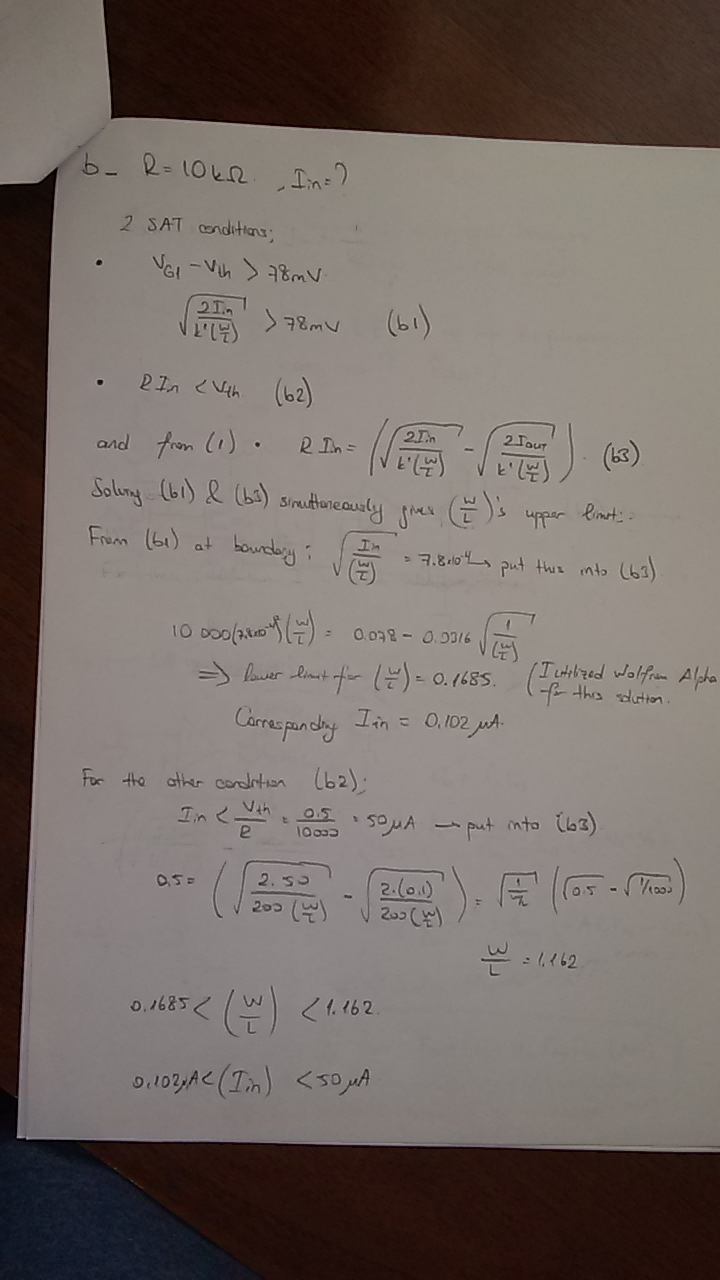 b- R=10kΩ , Iin=?
2 SAT conditions;
• VG1 - Vth > 78mV
√(2Iin / k'(W/L)) > 78mV (b1)
• R Iin < Vth (b2)
and from (1) • R Iin = (√(2Iin / k'(W/L)) - √(2Iout / k'(W/L))) . (b3)
Solving (b1) & (b3) simultaneously gives (W/L)'s upper limit:
From (b1) at boundary: √(Iin / (W/L)) = 7.8x10⁻⁴ → put this into (b3)
10 000(7.8x10⁻⁴)²(W/L) = 0.078 - 0.0316 √(1 / (W/L))
=> lower limit for (W/L) = 0.1685. (I utilized Wolfram Alpha
for this solution.
Corresponding Iin = 0,102 µA.
For the other condition (b2);
Iin < Vth/R = 0.5/10000 = 50µA → put into (b3)
0.5 = (√(2.50 / 200(W/L)) - √(2.(0.1) / 200(W/L))) = (√0.5 - √1/1000)
W/L = 1.162
0.1685 < (W/L) < 1.162.
0.102µA < (Iin) < 50µA